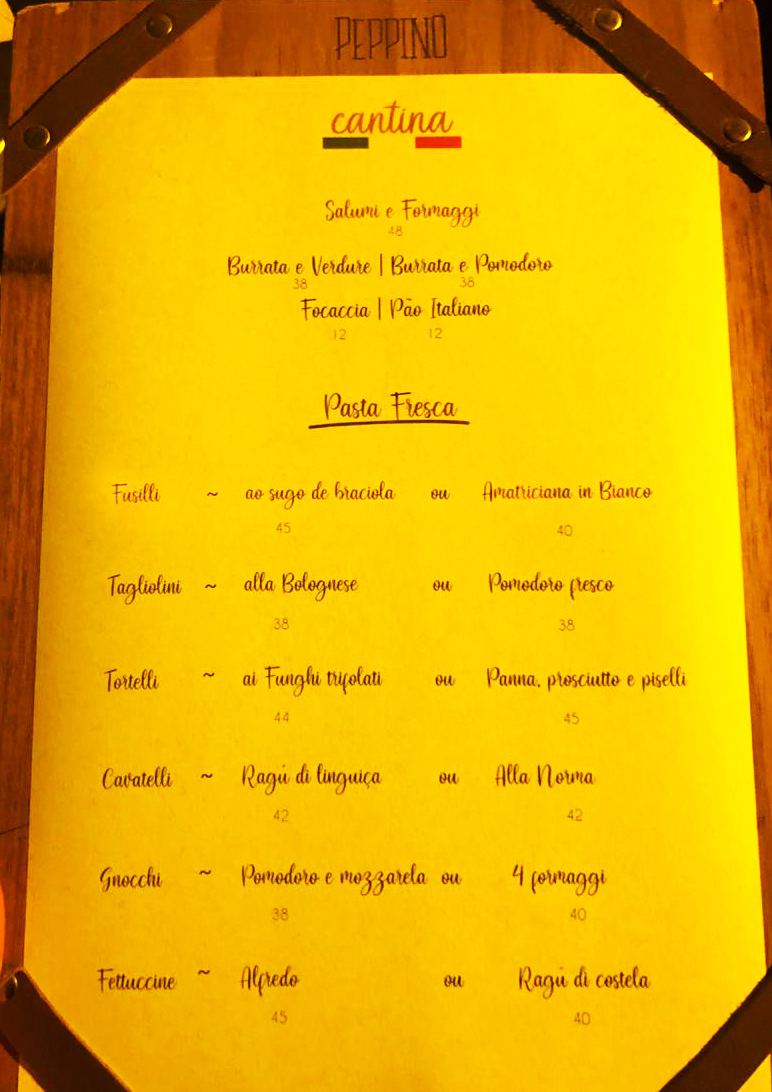 PEPPINO
cantina
Salumi e Formaggi
48
Burrata e Verdure | Burrata e Pomodoro
38 38
Focaccia | Pão Italiano
12 12
Pasta Fresca
Fusilli ~ ao sugo de braciola ou Amatriciana in Bianco
45 40
Tagliolini ~ alla Bolognese ou Pomodoro fresco
38 38
Tortelli ~ ai Funghi trifolati ou Panna, prosciutto e piselli
44 45
Cavatelli ~ Ragú di linguiça ou Alla Norma
42 42
Gnocchi ~ Pomodoro e mozzarela ou 4 formaggi
38 40
Fettuccine ~ Alfredo ou Ragú di costela
45 40